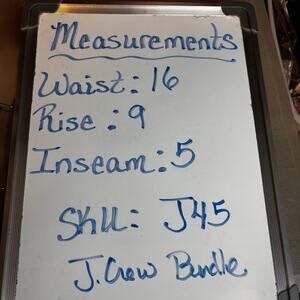 Measurements
Waist: 16
Rise: 9
Inseam: 5
Sku: J45
J. Crew Bundle